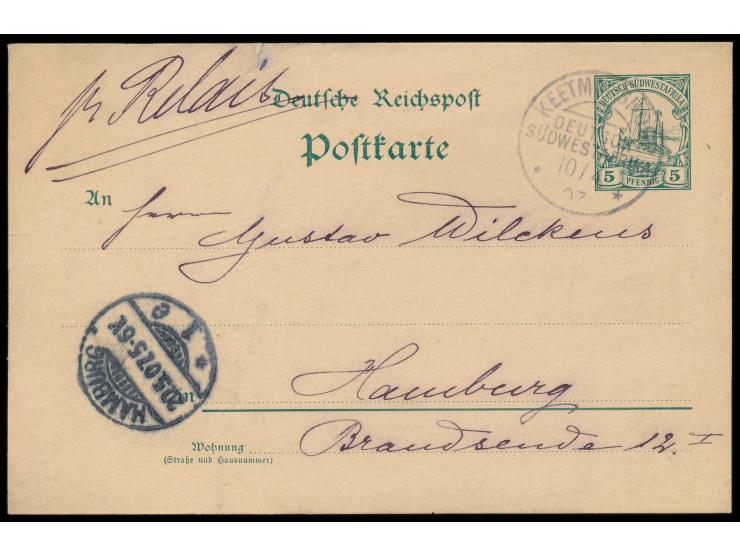 pr Relais
Deutsche Reichspost
Postkarte
DEUTSCH-SÜDWESTAFRIKA
5 PFENNIG 5
DEUTSCH
SÜDWESTAFRIKA
10/4
07
An Herrn
Gustav Wilckens
HAMBURG
20.5.07.5-6V.
* 1 e
in Hamburg
Brandsende 12 I
Wohnung
(Straße und Hausnummer)